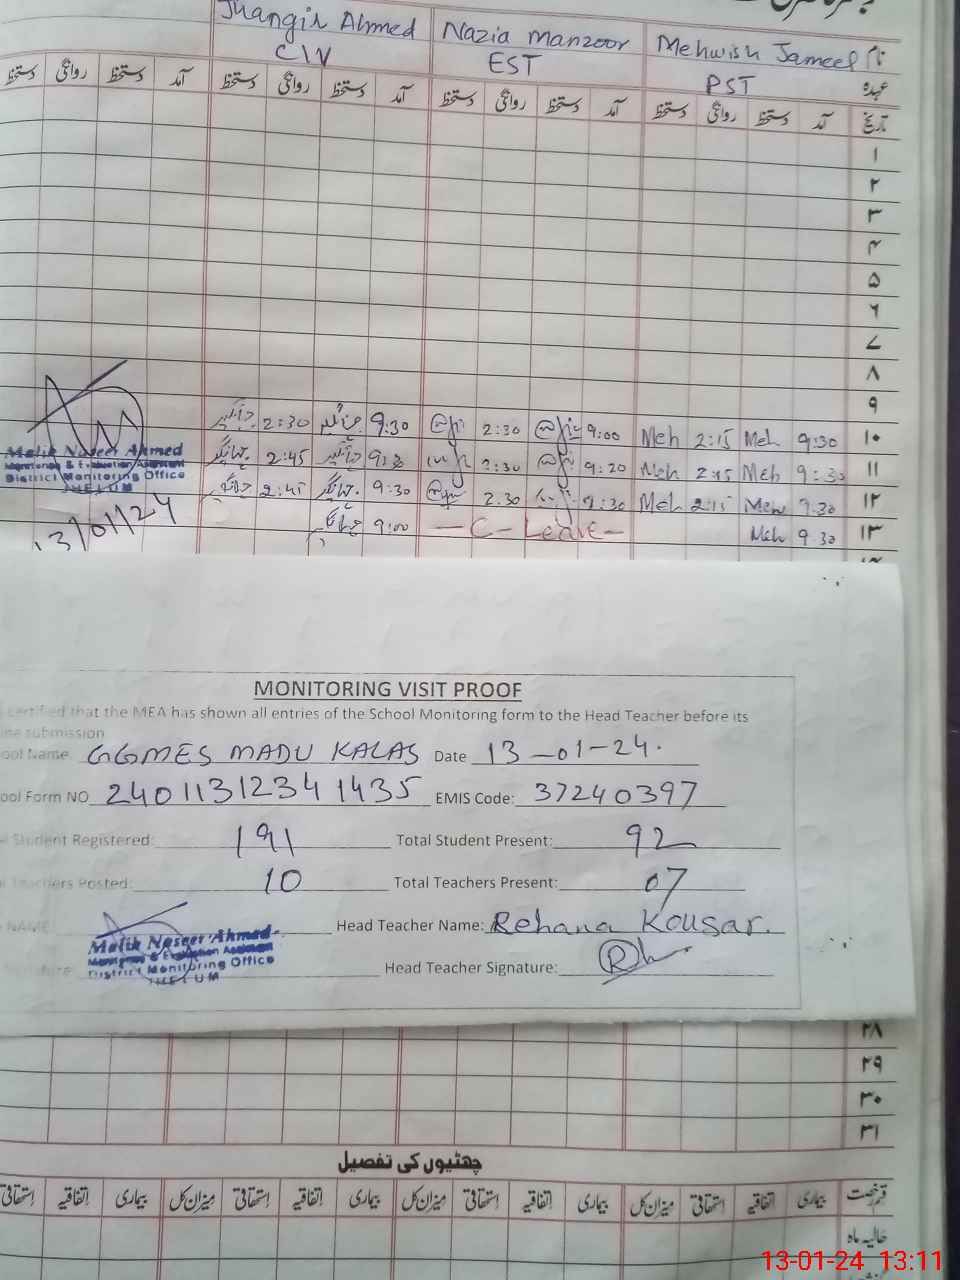 Jhangir Ahmed Nazia Manzoor Mehwish Jameel نام
C/IV EST PST عہدہ
دستخط روانگی دستخط آمد دستخط روانگی دستخط آمد دستخط روانگی دستخط آمد دستخط روانگی دستخط آمد تاریخ
۱
۲
۳
۴
۵
۶
۷
۸
۹
جہانگیر 2:30 جہانگیر 9:30 2:30 9:00 Meh 2:15 Meh 9:30 ۱۰
جہانگیر 2:45 جہانگیر 9:30 2:30 9:20 Meh 2:15 Meh 9:30 ۱۱
جہانگیر 2:45 جہانگیر 9:30 2.30 9:30 Meh 2:15 Meh 9.30 ۱۲
جہانگیر 9:00 — C - Leave — Meh 9.30 ۱۳
Malik Naseer Ahmed
Monitoring & Evaluation Assistant
District Monitoring Office
JHELUM
13/01/24
MONITORING VISIT PROOF
certified that the MEA has shown all entries of the School Monitoring form to the Head Teacher before its
submission
ool Name GGMES MADU KALAS Date 13-01-24.
ool Form NO 24011312341435 EMIS Code: 37240397
Student Registered: 191 Total Student Present: 92
Teachers Posted: 10 Total Teachers Present: 07
NAME Head Teacher Name: Rehana Kousar.
Malik Naseer Ahmed
Monitoring & Evaluation Assistant
District Monitoring Office
JHELUM
Head Teacher Signature:
۲۸
۲۹
۳۰
۳۱
چھٹیوں کی تفصیل
قسم رخصت بیماری اتفاقیہ استحقاقی میزان کل بیماری اتفاقیہ استحقاقی میزان کل بیماری اتفاقیہ استحقاقی میزان کل بیماری اتفاقیہ استحقاقی
حالیہ ماہ
13-01-24 13:11